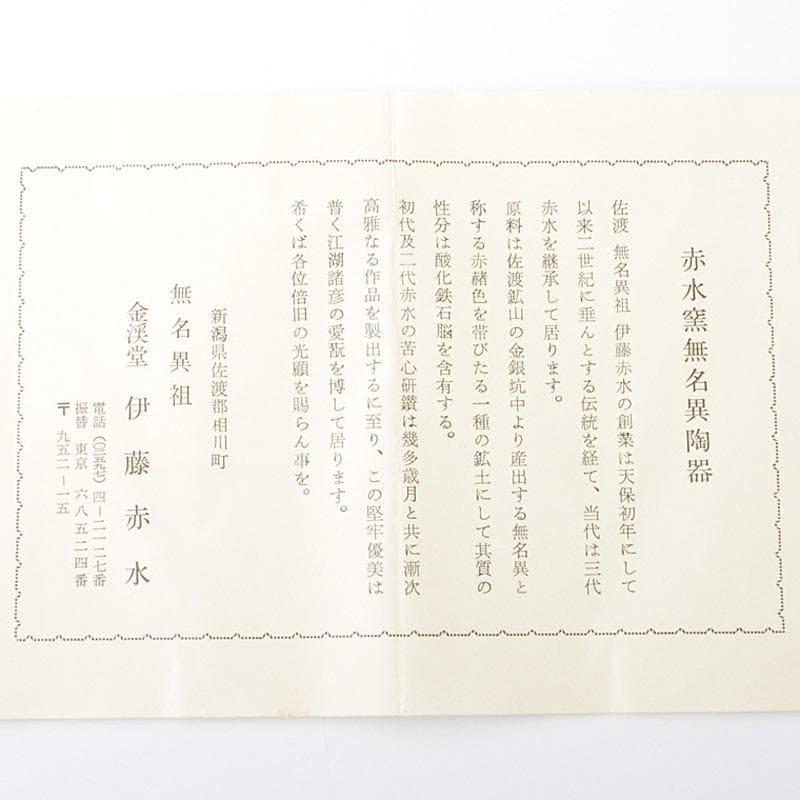 赤水窯無名異陶器
佐渡 無名異祖 伊藤赤水の創業は天保初年にして
以来二世紀に垂んとする伝統を経て、当代は三代
赤水を継承して居ります。
原料は佐渡鉱山の金銀坑中より産出する無名異と
称する赤赭色を帯びたる一種の鉱土にして其質の
性分は酸化鉄石脳を含有する。
初代及二代赤水の苦心研鑽は幾多歳月と共に漸次
高雅なる作品を製出するに至り、この堅牢優美は
普く江湖諸彦の愛翫を博して居ります。
希くば各位倍旧の光顧を賜らん事を。
新潟県佐渡郡相川町
無名異祖
金渓堂 伊藤赤水
電話（〇二五九七）四－二一二七番
振替 東京 六八五二四番
〒 九五二－一五